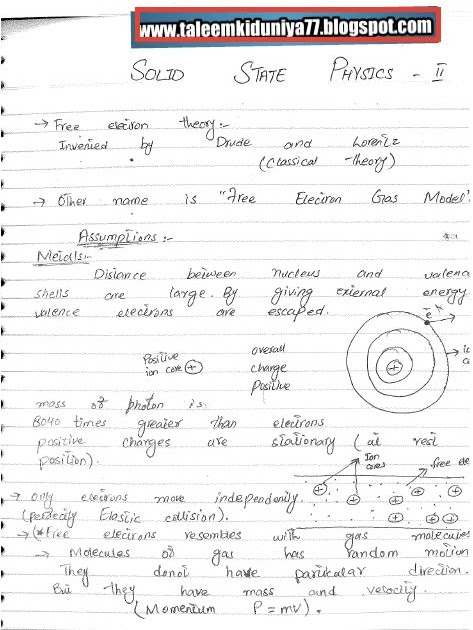 www.taleemkiduniya77.blogspot.com
SOLID STATE PHYSICS - II
→ Free electron theory:-
Invented by Drude and Lorentz
(Classical -theory)
→ Other name is "Free Electron Gas Model".
Assumptions:-
Metals:-
Distance between nucleus and valenc
shells are large. By giving external energy
valence electrons are escaped.
e⁻
Positive
ion core (+)
overall
charge
Positive
+
mass of photon is
8040 times greater than electrons
positive charges are stationary (at rest
position).
Ion
cores
free ele
→ only electrons move independently.
(perfectly Elastic collision).
+ + + + + +
→ (*Free electrons resembles with gas molecules
→ Molecules of gas has random motion
They donot have particular direction.
But they have mass and velocity.
(Momentum P = mv).